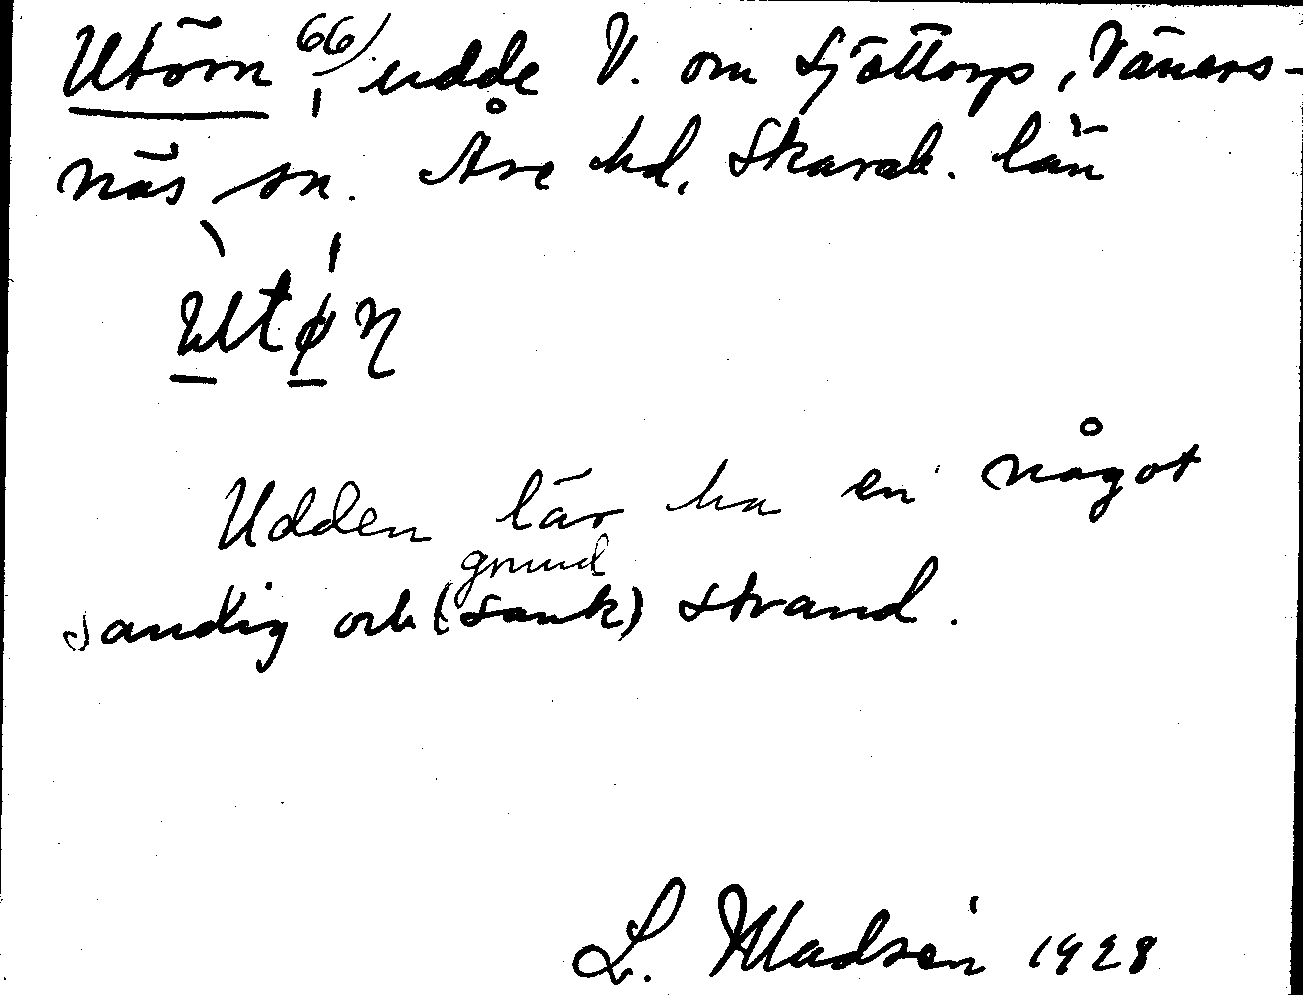 Utörn 66), udde V. om Sjöttorp, Väners-
näs sn. Åse hd, Skarab. län
ùtǿn
Udden lär ha en något
grund
sandig och (sank) strand.
L. Madsén 1928